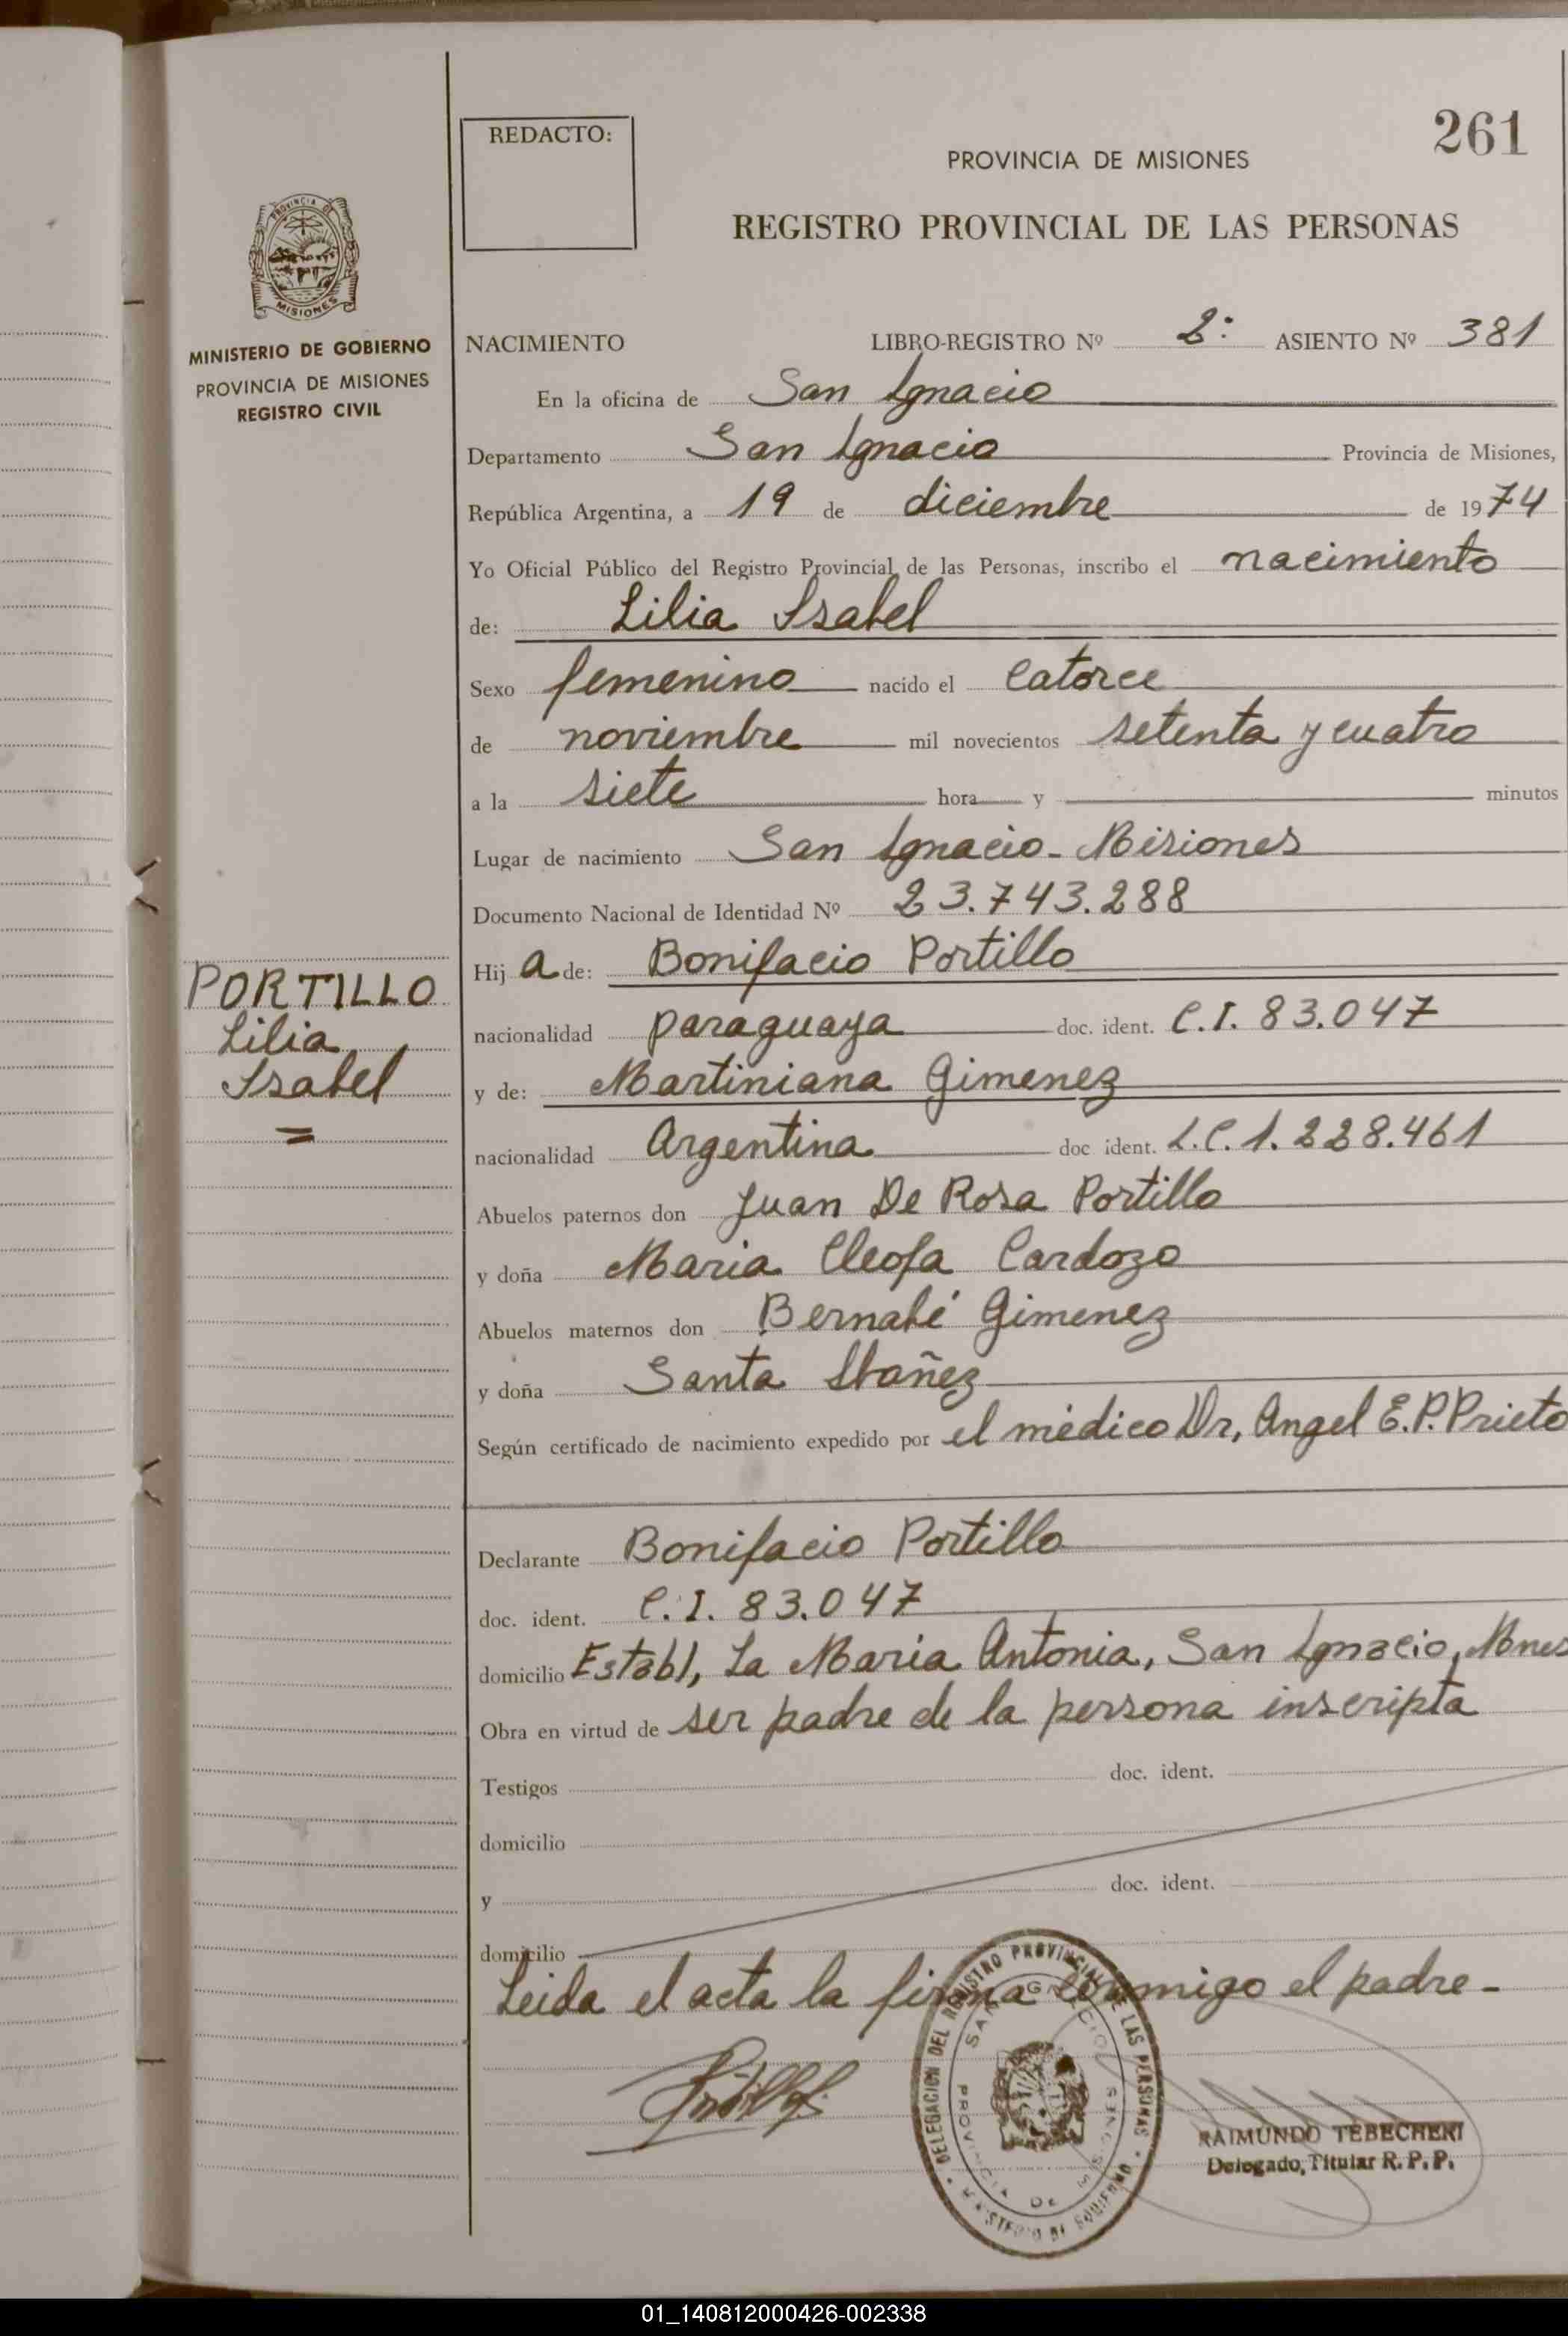 261
REDACTO:
PROVINCIA DE MISIONES
REGISTRO PROVINCIAL DE LAS PERSONAS
PROVINCIA DE
MISIONES
MINISTERIO DE GOBIERNO
PROVINCIA DE MISIONES
REGISTRO CIVIL
NACIMIENTO LIBRO-REGISTRO Nº 2: ASIENTO Nº 381
En la oficina de San Ignacio
Departamento San Ignacio Provincia de Misiones,
República Argentina, a 19 de diciembre de 1974
Yo Oficial Público del Registro Provincial de las Personas, inscribo el nacimiento
de: Lilia Isabel
Sexo femenino nacido el catorce
de noviembre mil novecientos setenta y cuatro
a la siete hora y minutos
Lugar de nacimiento San Ignacio - Misiones
Documento Nacional de Identidad Nº 23.743.288
PORTILLO
Lilia
Isabel
Hij a de: Bonifacio Portillo
nacionalidad paraguaya doc. ident. C.I. 83.047
y de: Martiniana Gimenez
nacionalidad Argentina doc ident. L.C. 1.228.461
Abuelos paternos don Juan De Rosa Portillo
y doña Maria Cleofa Cardozo
Abuelos maternos don Bernabé Gimenez
y doña Santa Ibañez
Según certificado de nacimiento expedido por el médico Dr, Angel E.P. Prieto
Declarante Bonifacio Portillo
doc. ident. C.I. 83.047
domicilio Establ, La Maria Antonia, San Ignacio, Mnes
Obra en virtud de ser padre de la persona inscripta
Testigos doc. ident.
domicilio
y doc. ident.
domicilio
Leida el acta la firma conmigo el padre -
DELEGACION DEL REGISTRO PROVINCIAL DE LAS PERSONAS
SAN IGNACIO
PROVINCIA DE MISIONES
MINISTERIO DE GOBIERNO
RAIMUNDO TEBECHERI
Delegado, Titular R. P. P.
01_140812000426-002338